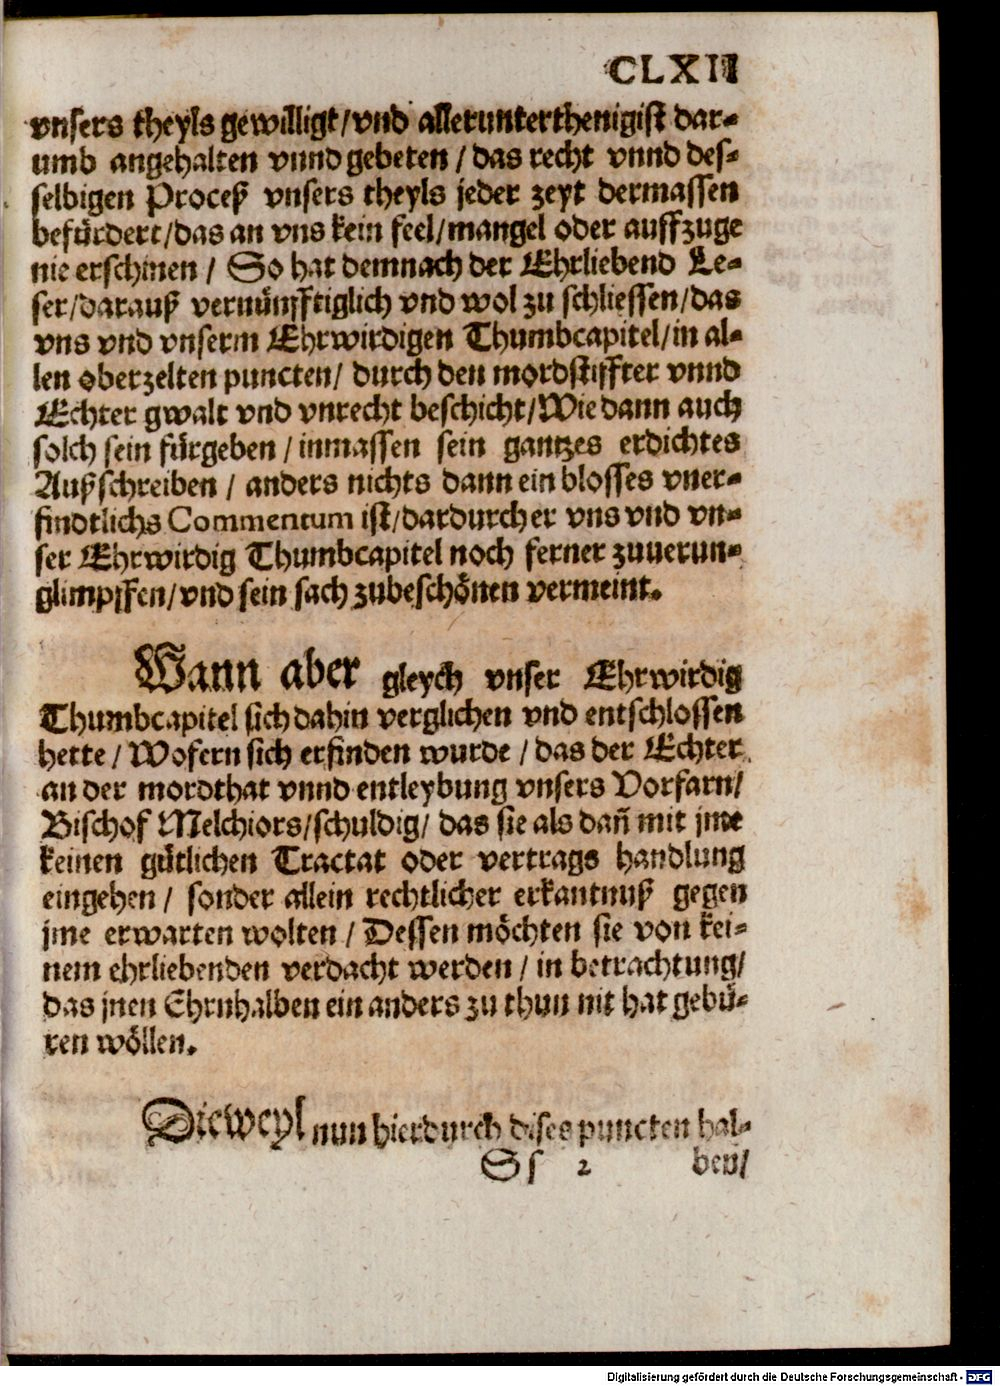 CLXII
vnsers theyls gewilligt/vnd allerunterthenigist dar-
umb angehalten vnnd gebeten / das recht vnnd des-
selbigen Proceß vnsers theyls jeder zeyt dermassen
befürdert/das an vns kein feel/mangel oder auffzuge
nie erschinen / So hat demnach der Ehrliebend Le-
ser/darauß vernünfftiglich vnd wol zu schliessen/das
vns vnd vnserm Ehrwirdigen Thumbcapitel/in al-
len oberzelten puncten/ durch den mordstiffter vnnd
Echter gwalt vnd vnrecht beschicht/Wie dann auch
solch sein fürgeben / inmassen sein gantzes erdichtes
Außschreiben / anders nichts dann ein blosses vner-
findtlichs Commentum ist/dardurch er vns vnd vn-
ser Ehrwirdig Thumbcapitel noch ferner zuuerun-
glimpffen/vnd sein sach zubeschönen vermeint.
Wann aber gleych vnser Ehrwirdig
Thumbcapitel sich dahin verglichen vnd entschlossen
hette / Wofern sich erfinden wurde / das der Echter
an der mordthat vnnd entleybung vnsers Vorfarn/
Bischof Melchiors/schuldig/ das sie als dañ mit jme
keinen gütlichen Tractat oder vertrags handlung
eingehen / sonder allein rechtlicher erkantnuß gegen
jme erwarten wolten / Dessen möchten sie von kei-
nem ehrliebenden verdacht werden / in betrachtung/
das jnen Ehrnhalben ein anders zu thun nit hat gebü-
ren wöllen.
Dieweyl nun hierdurch dises puncten hal-
Ss 2 ben/
Digitalisierung gefördert durch die Deutsche Forschungsgemeinschaft - DFG